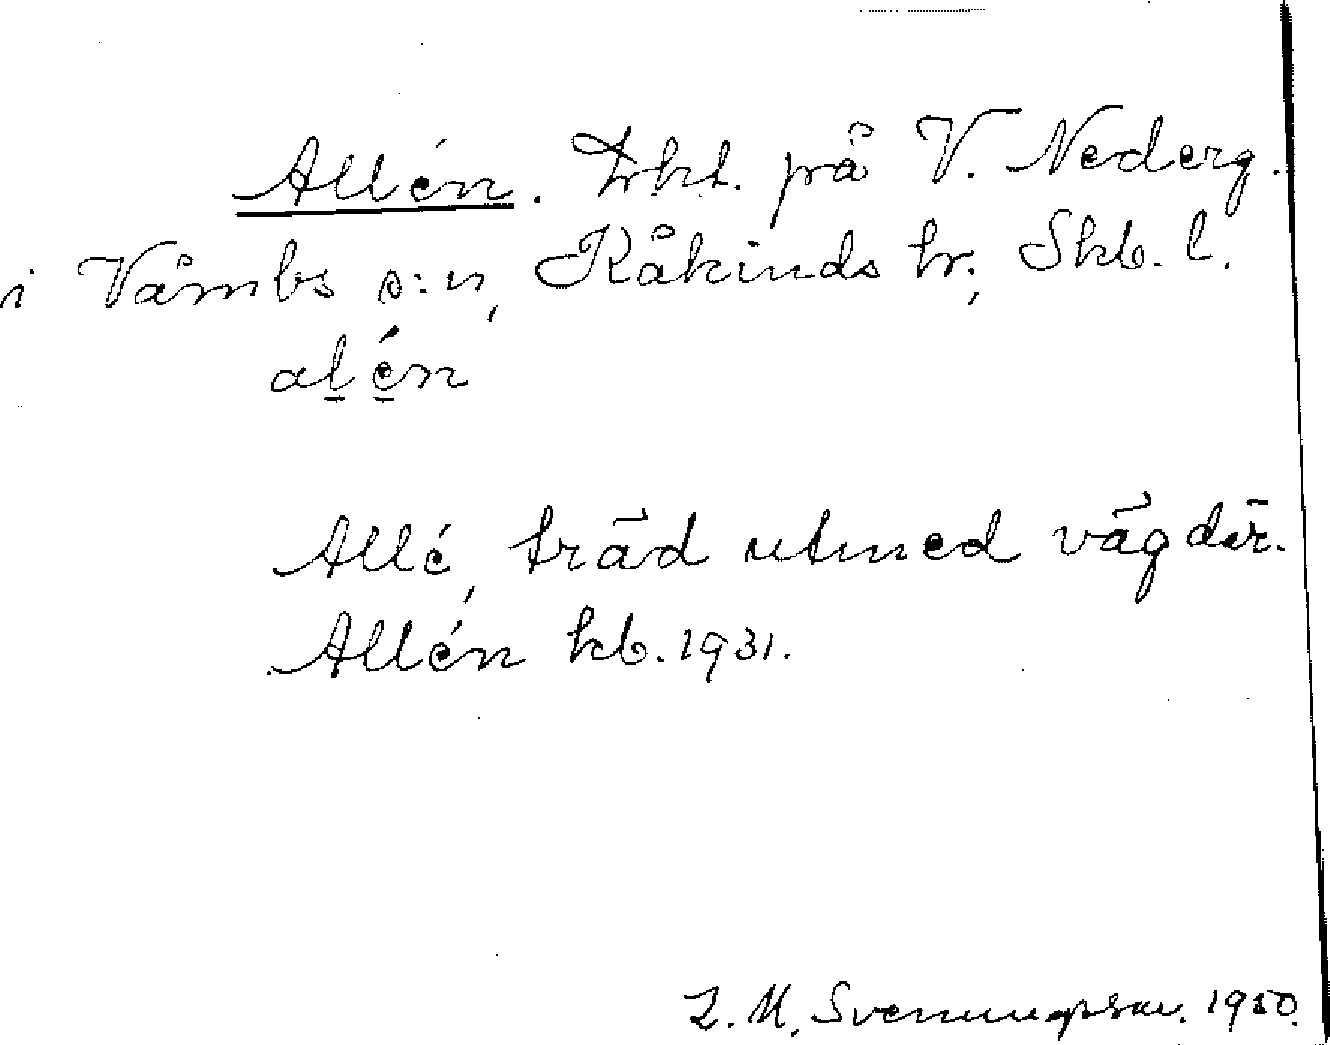 Allén. Lht. på V. Nederg.
i Våmbs s:n, Kåkinds hr; Skb. l.
alén
Allé, träd utmed väg där.
Allén kb. 1931.
L. M. Svenungsson. 1950.